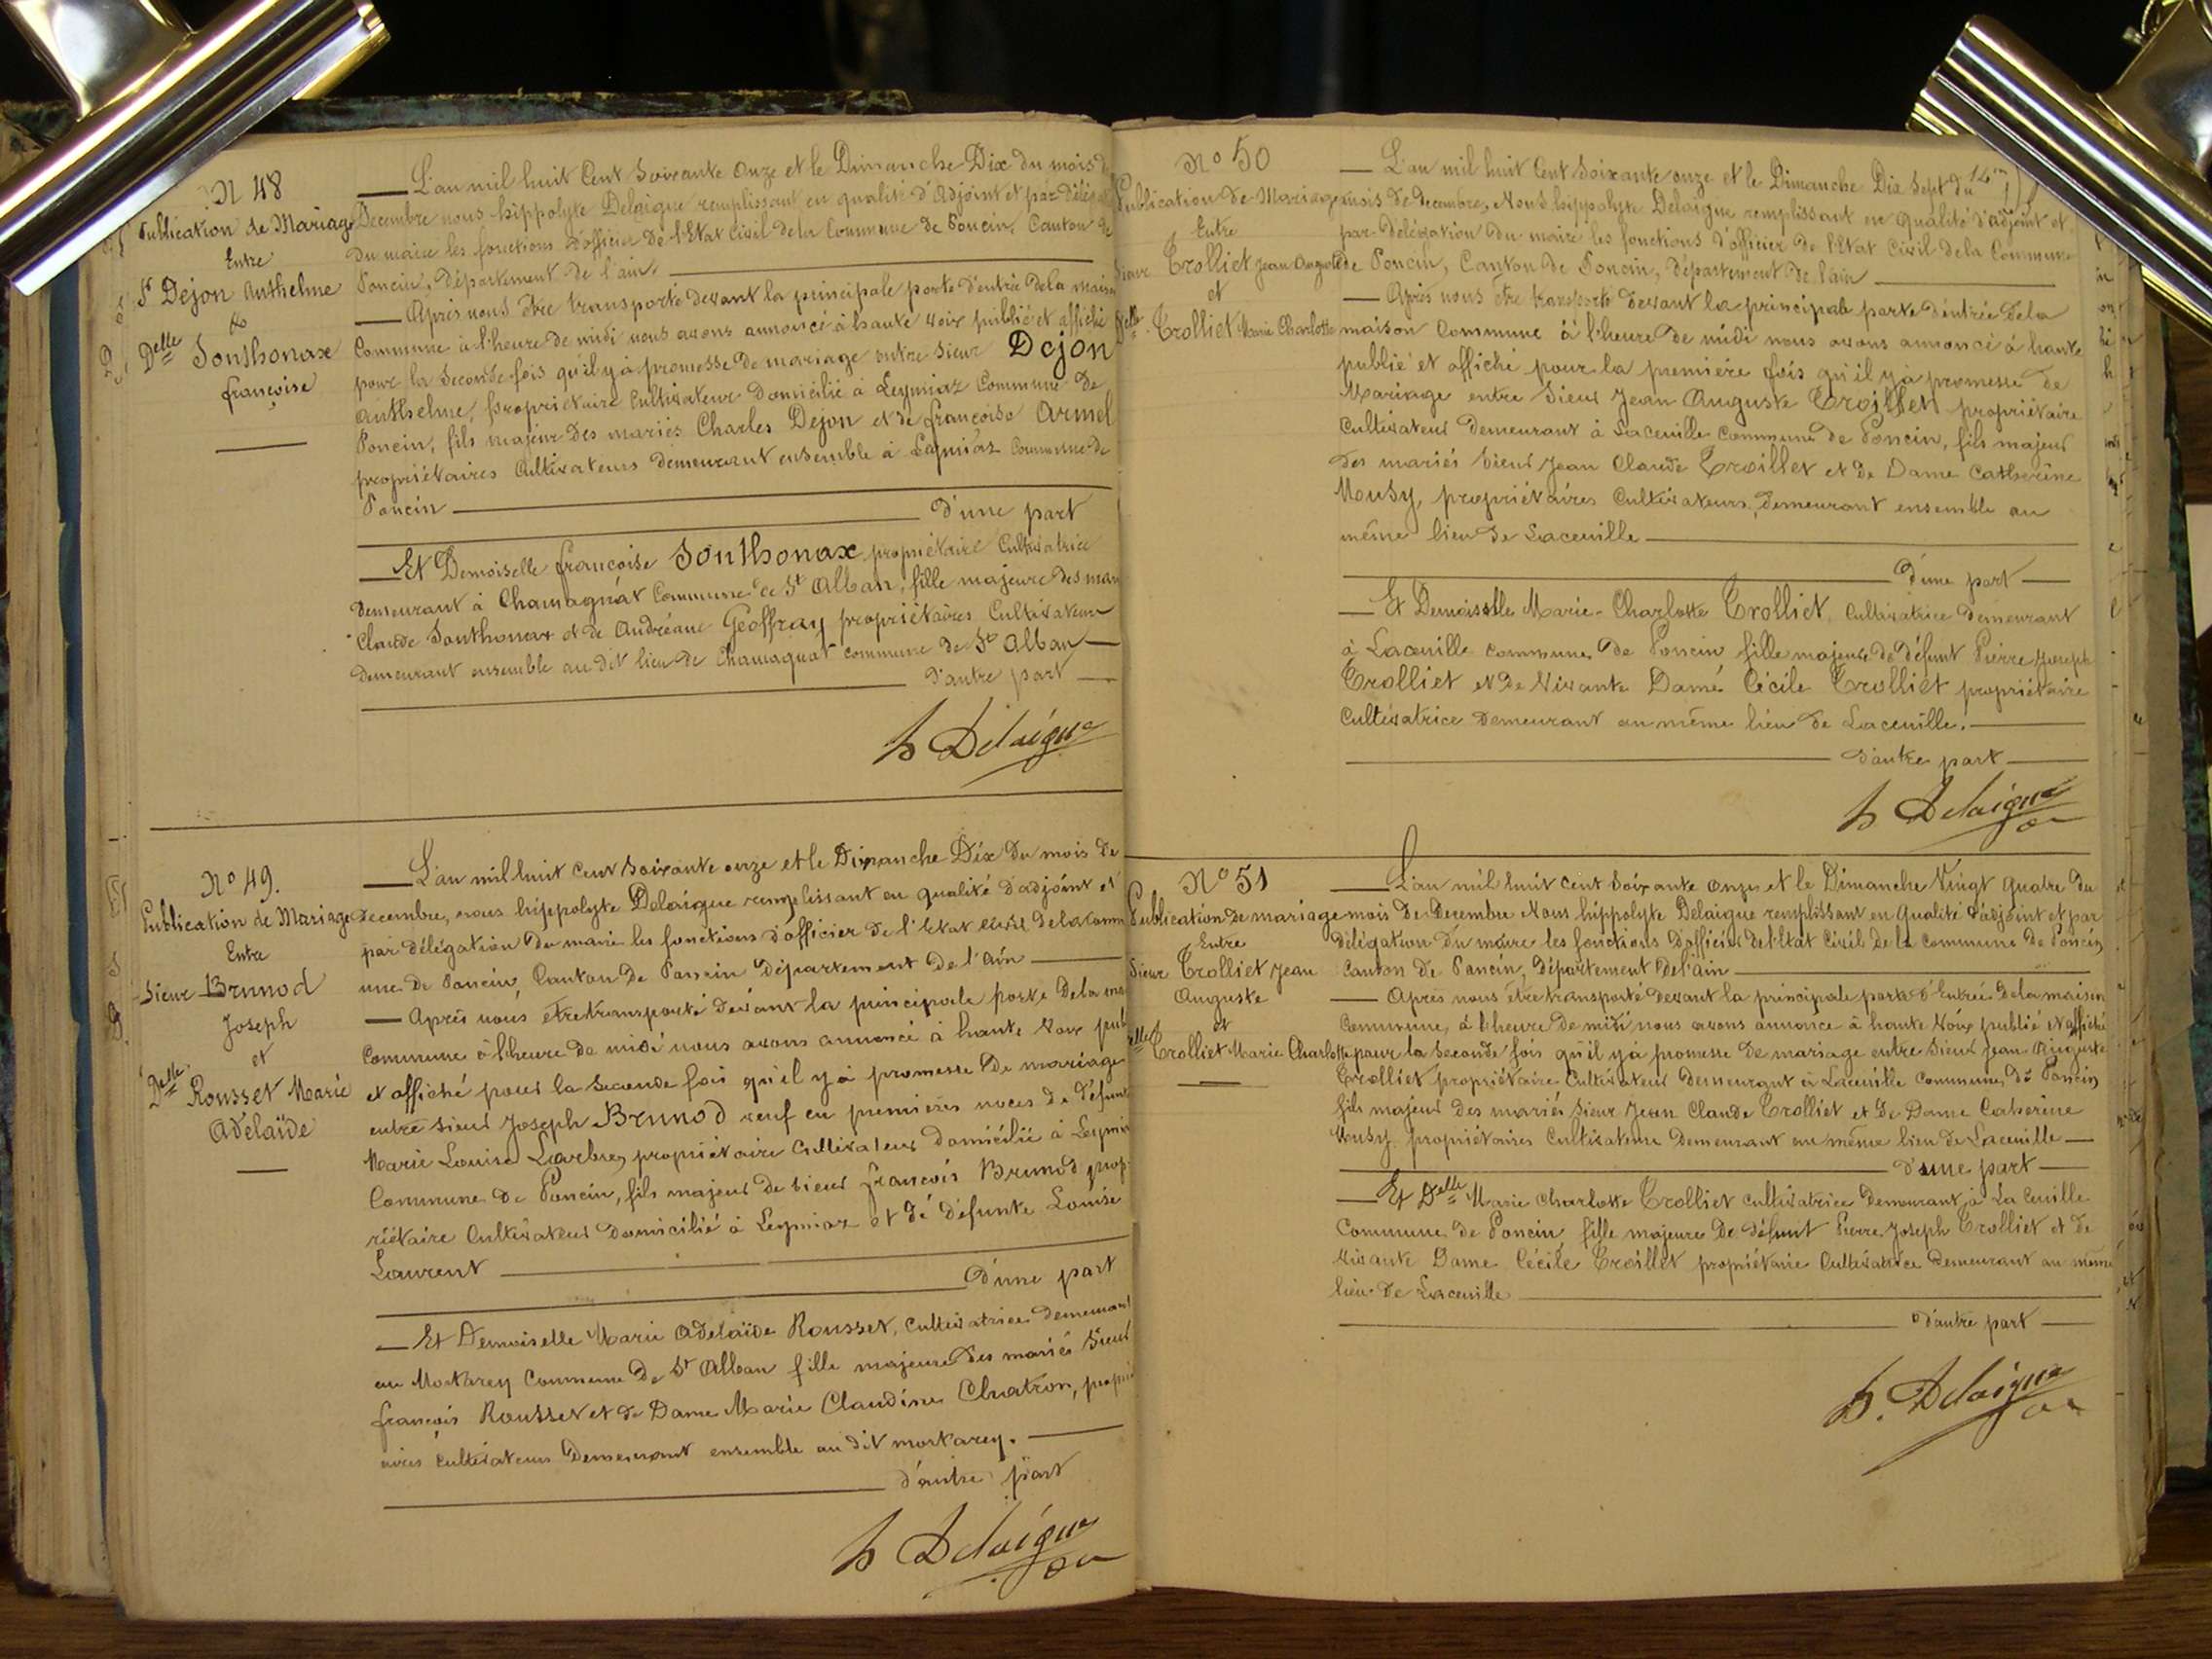 N 48
Publication de Mariage
Entre
Sr Dejon Anthelme
&
Delle Sonthonax
françoise
L'an mil huit Cent Soixante Onze et le Dimanche Dix du mois de
Decembre nous hippolyte Delaigue remplissant en qualité d'Adjoint et par
Du maire les fonctions d'officier De l'Etat Civil de la Commune de Poncin, Canton de
Poncin, Département de l'ain.
Après nous être transporté devant la principale porte d'entrée De la maison
Commune à l'heure de midi nous avons annoncé à haute voix publié et affiché
pour la Seconde fois qu'il y à promesse de mariage entre Sieur Dejon
Anthelme, propriétaire Cultivateur Domicilié à Leymiaz Commune de
Poncin, fils majeur Des mariés Charles Dejon et de françoise Armel
propriétaires Cultivateurs demeurant ensemble à Leymiaz Commune de
Poncin
D'une part
Et Demoiselle françoise Sonthonax propriétaire Cultivatrice
Demeurant à Chamagnat Commune de St Alban, fille majeure des
Claude Sonthonax et de Andréane Geoffray propriétaires Cultivateurs
Demeurant ensemble au dit lieu de Chamagnat commune de St Alban
D'autre part
h Delaigue
No 49.
Publication de Mariage
Entre
Sieur Brunod
Joseph
et
Delle Rousset Marie
Adelaïde
L'an mil huit cent Soixante onze et le Dimanche Dix Du mois de
Decembre, nous hippolyte Delaigue remplissant en qualité d'adjoint et
par délégation Du maire les fonctions d'officier de l'Etat civil de la Comm
une De Poncin, Canton De Poncin Département De l'Ain
Après nous être transporté devant la principale porte De la
Commune à l'heure de midi nous avons annoncé à haute voix
et affiché pour la Seconde fois qu'il y à promesse De mariage
entre Sieur Joseph Brunod veuf en premières noces de défunte
Marie Louise Larbre, propriétaire Cultivateur Domicilié à
Commune De Poncin, fils majeur de Sieur françois Brunod prop
riétaire Cultivateur Domicilié à Leymiaz et dé défunte Louise
Laurent
D'une part
Et Demoiselle Marie Adelaïde Rousset, Cultivatrice demeurant
au Mortarey Commune De St Alban fille majeure Des mariés Sieur
françois Rousset et de Dame Marie Claudine Chatron,
aires Cultivateurs Demeurant ensemble au dit mortarey.
d'autre part
h Delaigue
No 50
Publication de Mariage
Entre
Sieur Trolliet Jean Auguste
et
Delle Trolliet Marie Charlotte
L'an mil huit Cent Soixante onze et le Dimanche Dix Sept du
mois de decembre, Nous hippolyte Delaigue remplissant en qualité d'adjoint et
par délégation Du maire les fonctions d'officier de l'Etat Civil de la Commune
de Poncin, Canton de Poncin, département de l'ain
Après nous être transporté devant la principale porte d'entrée de la
maison Commune à l'heure de midi nous avons annoncé à haute
publié et affiché pour la première fois qu'il y à promesse de
Mariage entre Sieur Jean Auguste Trolliet propriétaire
Cultivateur demeurant à Lacueille Commune de Poncin, fils majeur
des mariés Sieur Jean Claude Trolliet et de Dame Catherine
Mousy, propriétaires Cultivateurs, demeurant ensemble au
même lieu de Lacueille
D'une part
Et Demoiselle Marie-Charlotte Trolliet, Cultivatrice demeurant
à Lacueille commune de Poncin fille majeure de défunt Pierre Joseph
Trolliet et de Vivante Dame Cécile Trolliet propriétaire
Cultivatrice demeurant au même lieu de Lacueille.
d'autre part
h Delaigue
No 51
Publication de mariage
Entre
Sieur Trolliet Jean
Auguste
et
elle Trolliet Marie Charlotte
L'an mil huit cent Soixante onze et le Dimanche Vingt quatre du
mois de decembre Nous hippolyte Delaigue remplissant en qualité d'adjoint et par
délégation du maire les fonctions d'officier de l'Etat Civil De la Commune de Poncin,
Canton de Poncin, département de l'ain
Après nous être transporté devant la principale porte d'Entrée de la maison
Commune, à l'heure de midi nous avons annonce à haute voix publié et affiché
pour la Seconde fois qu'il y à promesse de mariage entre Sieur Jean Auguste
Trolliet propriétaire Cultivateur demeurant à Lacueille commune de Poncin
fils majeur des mariés Sieur Jean Claude Trolliet et de Dame Catherine
Mousy propriétaires Cultivateurs demeurant au même lieu de Lacueille
d'une part
Et Delle Marie Charlotte Trolliet Cultivatrice demeurant à La Cueille
Commune de Poncin fille majeure de défunt Pierre Joseph Trolliet et de
vivante Dame Cécile Trolliet propriétaire Cultivatrice demeurant au même
lieu de Lacueille
d'autre part
h. Delaigue